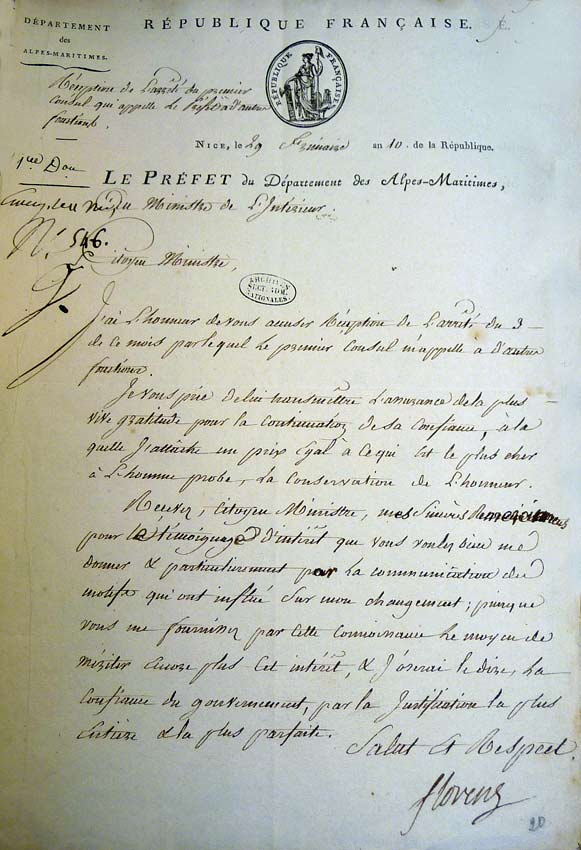 DÉPARTEMENT
des
ALPES-MARITIMES.
RÉPUBLIQUE FRANÇAISE.
RÉPUBLIQUE FRANÇAISE
Réception de l'arrêté du premier
Consul qui appelle le Préfet à d'autres
fonctions
NICE, le 29 frimaire an 10. de la République.
1ere Don
LE PRÉFET du Département des Alpes-Maritimes,
au Ministre de l'Intérieur.
N.º 546.
Citoyen Ministre,
ARCHIVES
SECT. ADM.
NATIONALES.
J'ai l'honneur de vous accuser Réception de l'arrêté du 3
de ce mois par lequel le premier Consul m'appelle à d'autre
fonctions.
Je vous prie de lui transmettre l'assurance de la plus
vive gratitude pour la Continuation de sa Confiance, à la
quelle j'attache un prix Egal à ce qui est le plus cher
à l'homme probe, la Conservation de l'honneur.
Recevez, Citoyen Ministre, mes Sincères Remerciemens
pour le témoignage d'intérêt que vous voulez bien me
donner & particulièrement par la communication des
motifs qui ont influé sur mon changement; puisque
vous me fournissez par cette connoissance le moyen de
mériter encore plus cet intérêt, & j'oserai le dire, la
Confiance du gouvernement, par la Justification la plus
entière & la plus parfaite.
Salut et Respect.
florens
20